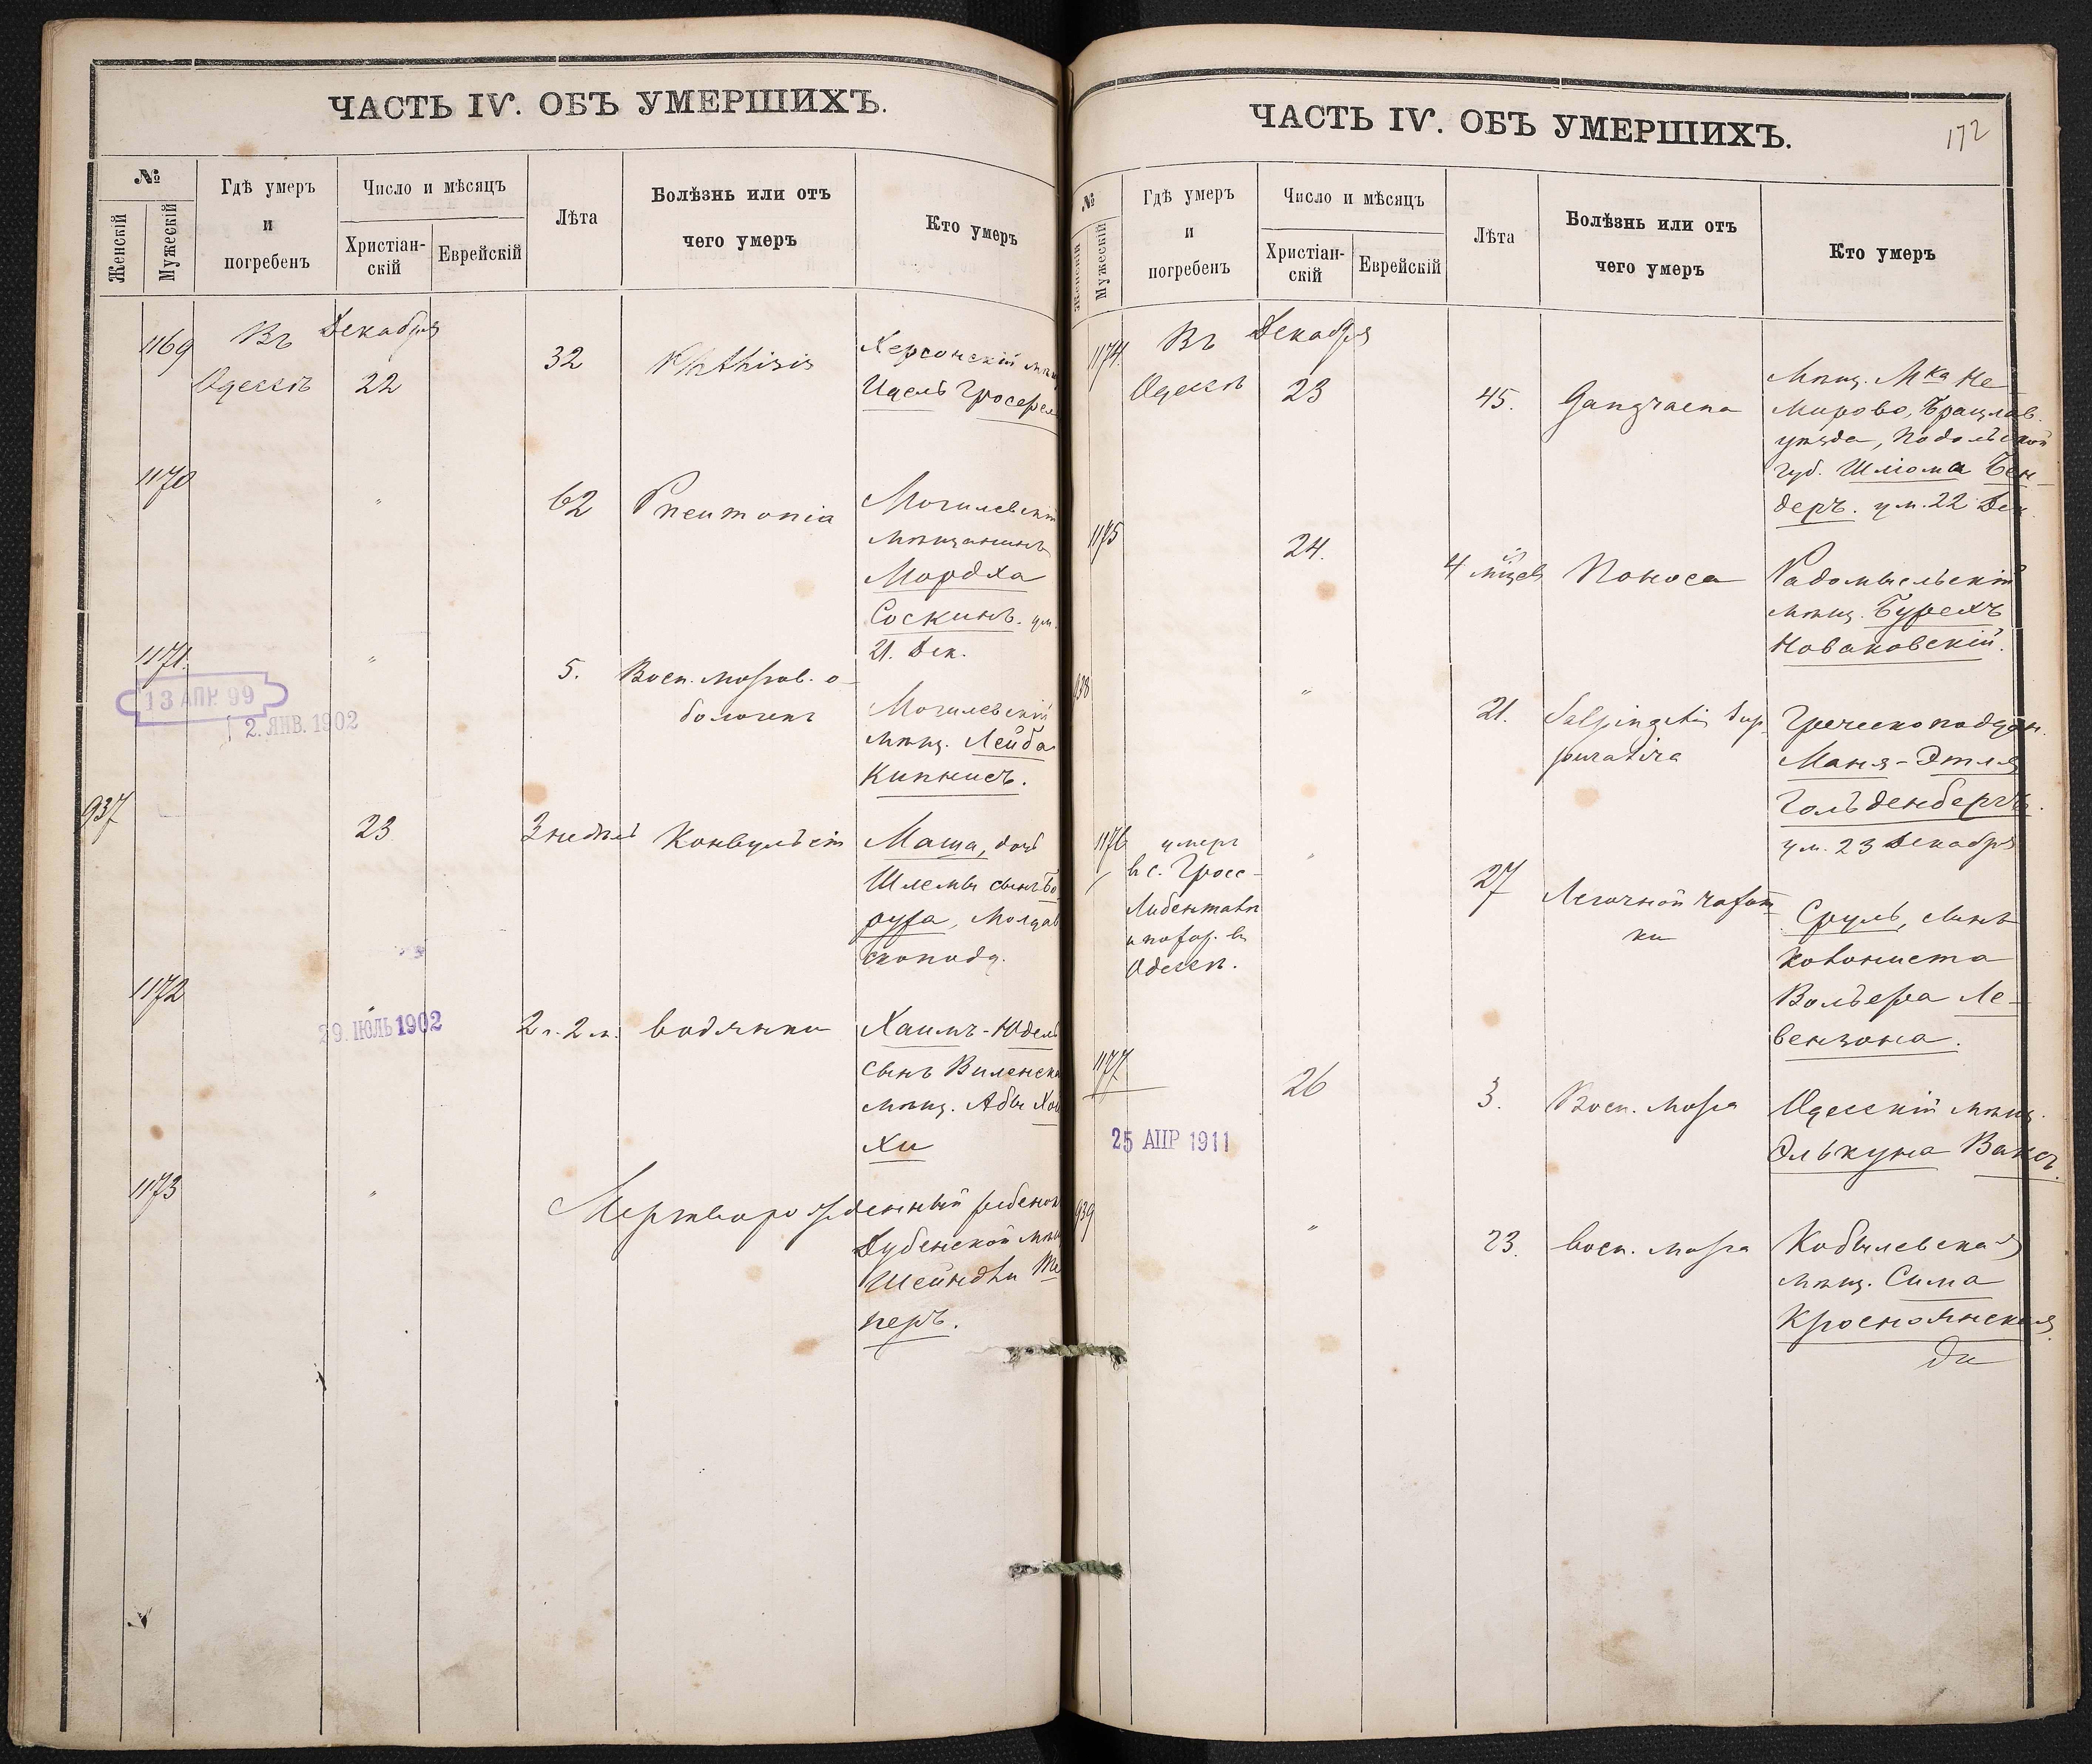 ЧАСТЬ IV. ОБЪ УМЕРШИХЪ.
№
Женскій
Мужескій
Гдѣ умеръ
и
погребенъ
Число и мѣсяцъ
Христіан-
скій
Еврейскій
Лѣта
Болѣзнь или отъ
чего умеръ
Кто умеръ
1169
Въ Декабря
Одессѣ 22
32
Phthisis
Херсонскій
Идель
1170
"
62
Pneumonia
Могилевскій
мѣщанинъ
Мордха
Соскинъ. ум.
21. Дек.
1171.
"
5.
Восп. мозгов. о-
болочекъ
Могилевскій
мѣщ. Лейба
Кипнисъ.
13 АПР. 99
2. ЯНВ. 1902
937
23
3 недѣль
Конвульсіи
Маша, дочь
Шлемы
скоподд.
1172
"
29. ІЮЛЬ 1902
2 г. 2 м.
водянки
Хаимъ-Юдель
сынъ Виленск
мѣщ. Абы
хи
1173
"
Мертворожденный ребенок
Дубенской
Шейндли
перъ.
ЧАСТЬ IV. ОБЪ УМЕРШИХЪ.
172
№
Женскій
Мужескій
Гдѣ умеръ
и
погребенъ
Число и мѣсяцъ
Христіан-
скій
Еврейскій
Лѣта
Болѣзнь или отъ
чего умеръ
Кто умеръ
1174.
Въ Декабря
Одессѣ 23
45.
Gangraena
Мѣщ. Мка Не
мирово, Брацлав.
уѣзда, Подольской
губ. Шлiома Бен-
деръ. ум. 22 Дек.
1175
24.
4 мѣцев
Поноса
Радомысльскій
мѣщ. Бурехъ
Новаковскій.
938
"
21.
Salpingitis sup
purativa
Греческоподдан.
Маня-Этля
Гольденбергъ.
ум. 23 Декабря
1176
умеръ
в с. Гросс-
Либенталь
и погр. въ
Одессѣ.
"
27
Легочной чахот-
ки
Сруль, сынъ
колониста
Вольфа Ле-
вензона.
1177
26
3.
Восп. мозга
Одесскій мѣщ.
Элькуна Ваксъ.
25 АПР 1911
939
"
23.
восп. мозга
Кобылевская
мѣщ. Сима
Краснолянская